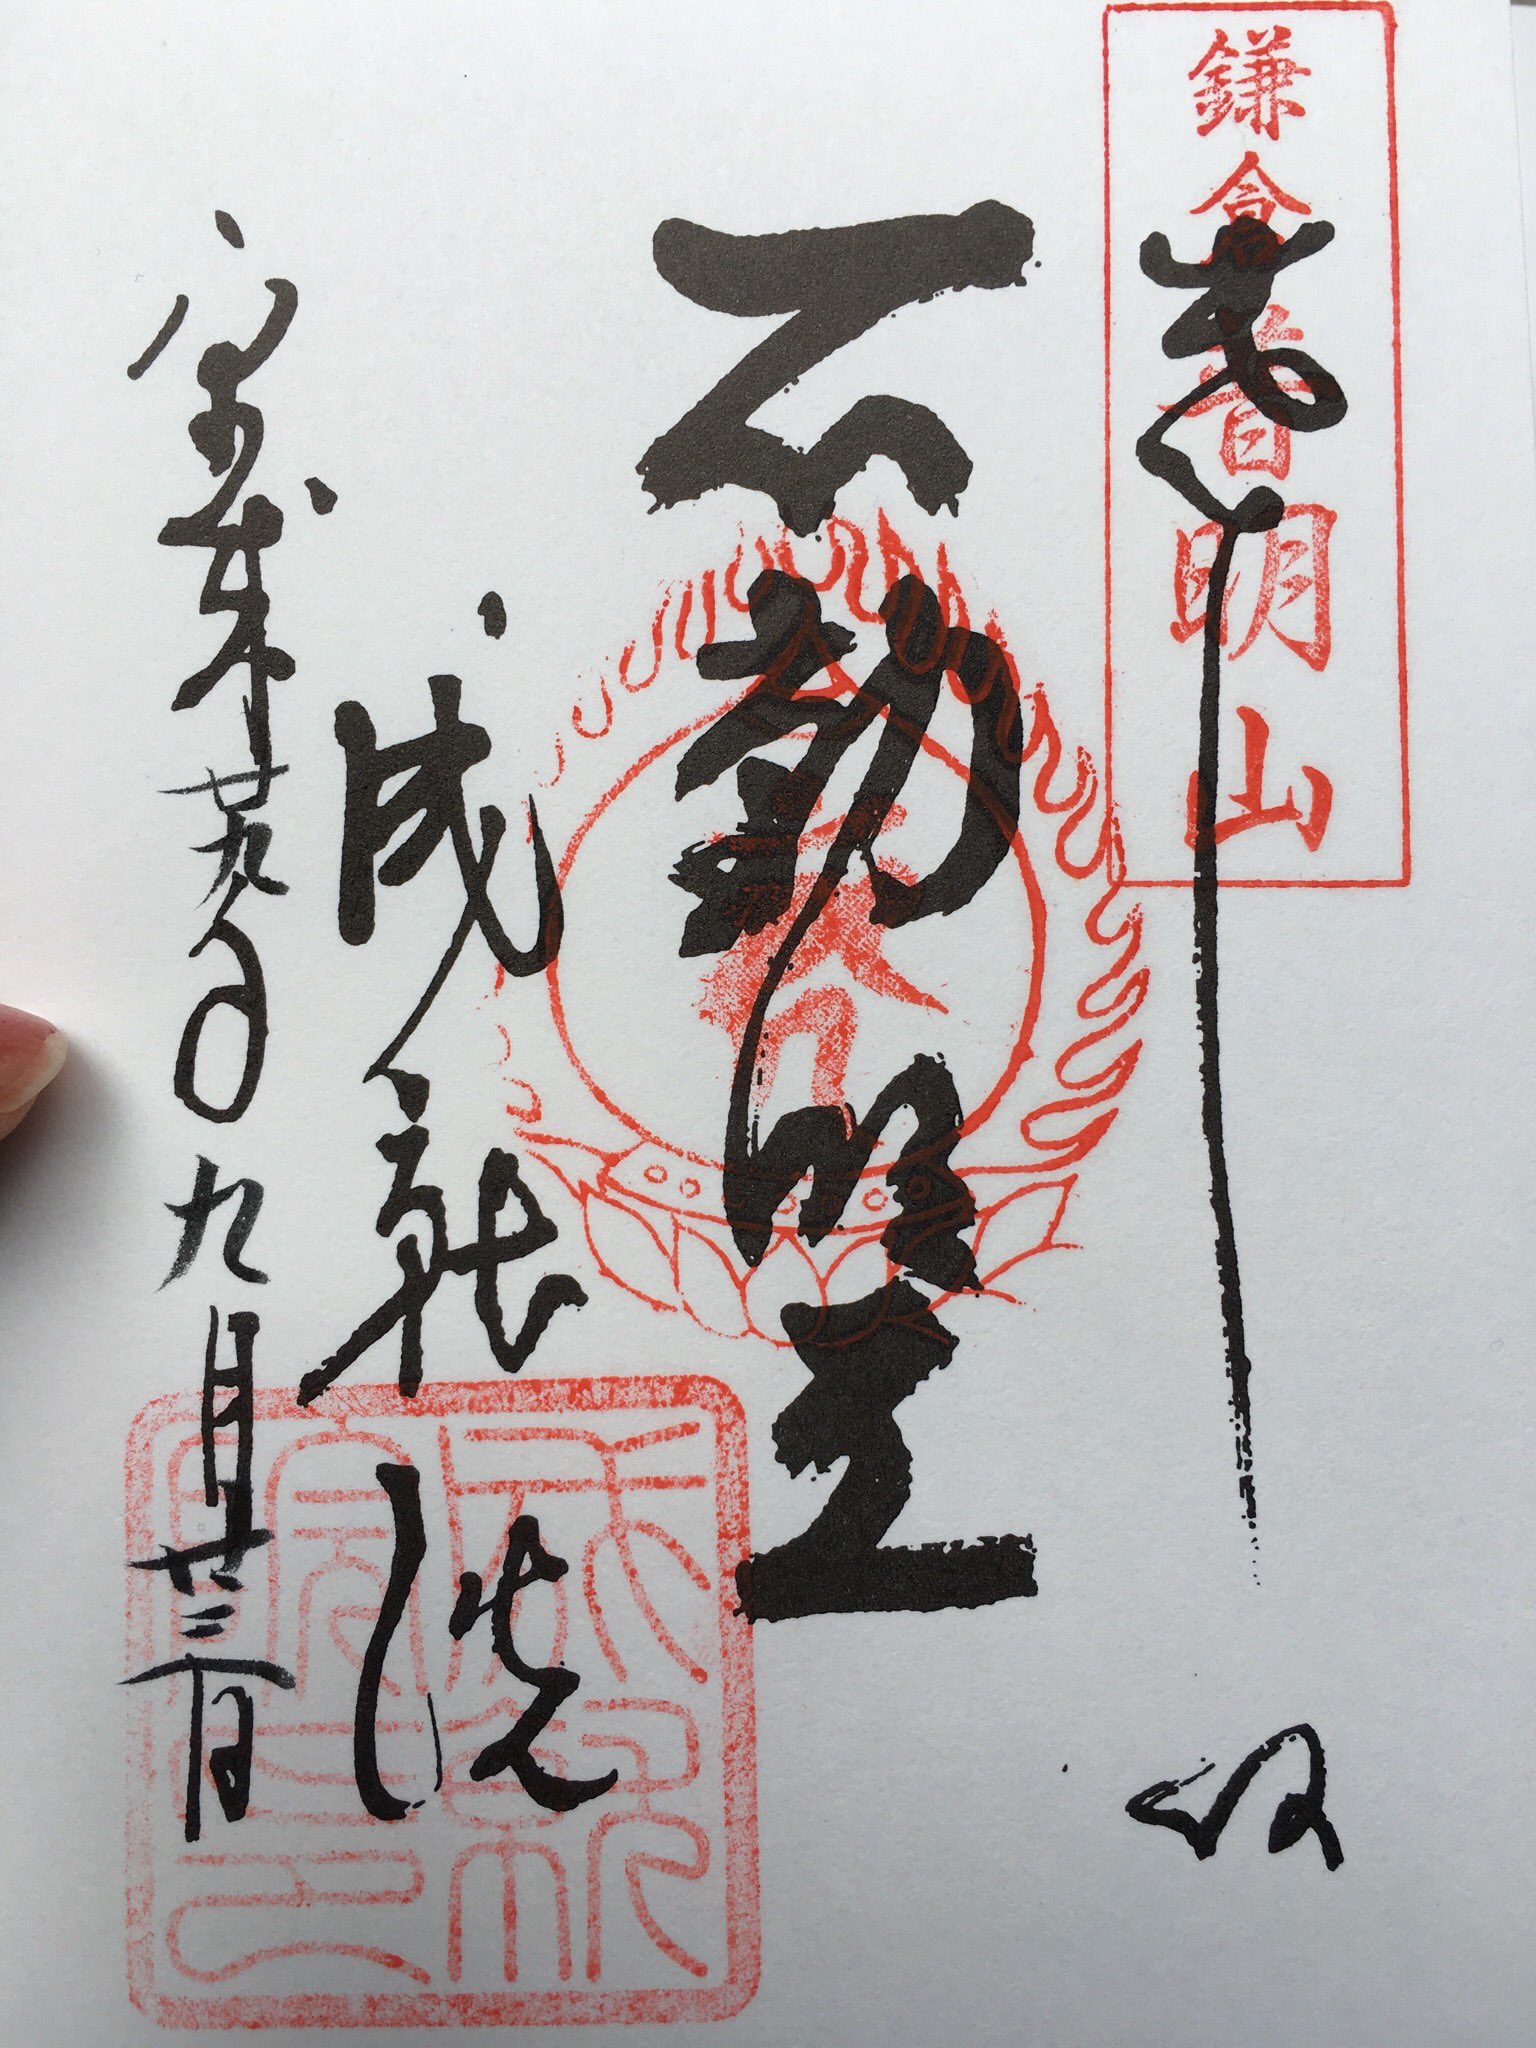 鎌倉普明山
奉拝
不動明王
成就院
平成廿九年九月廿三日